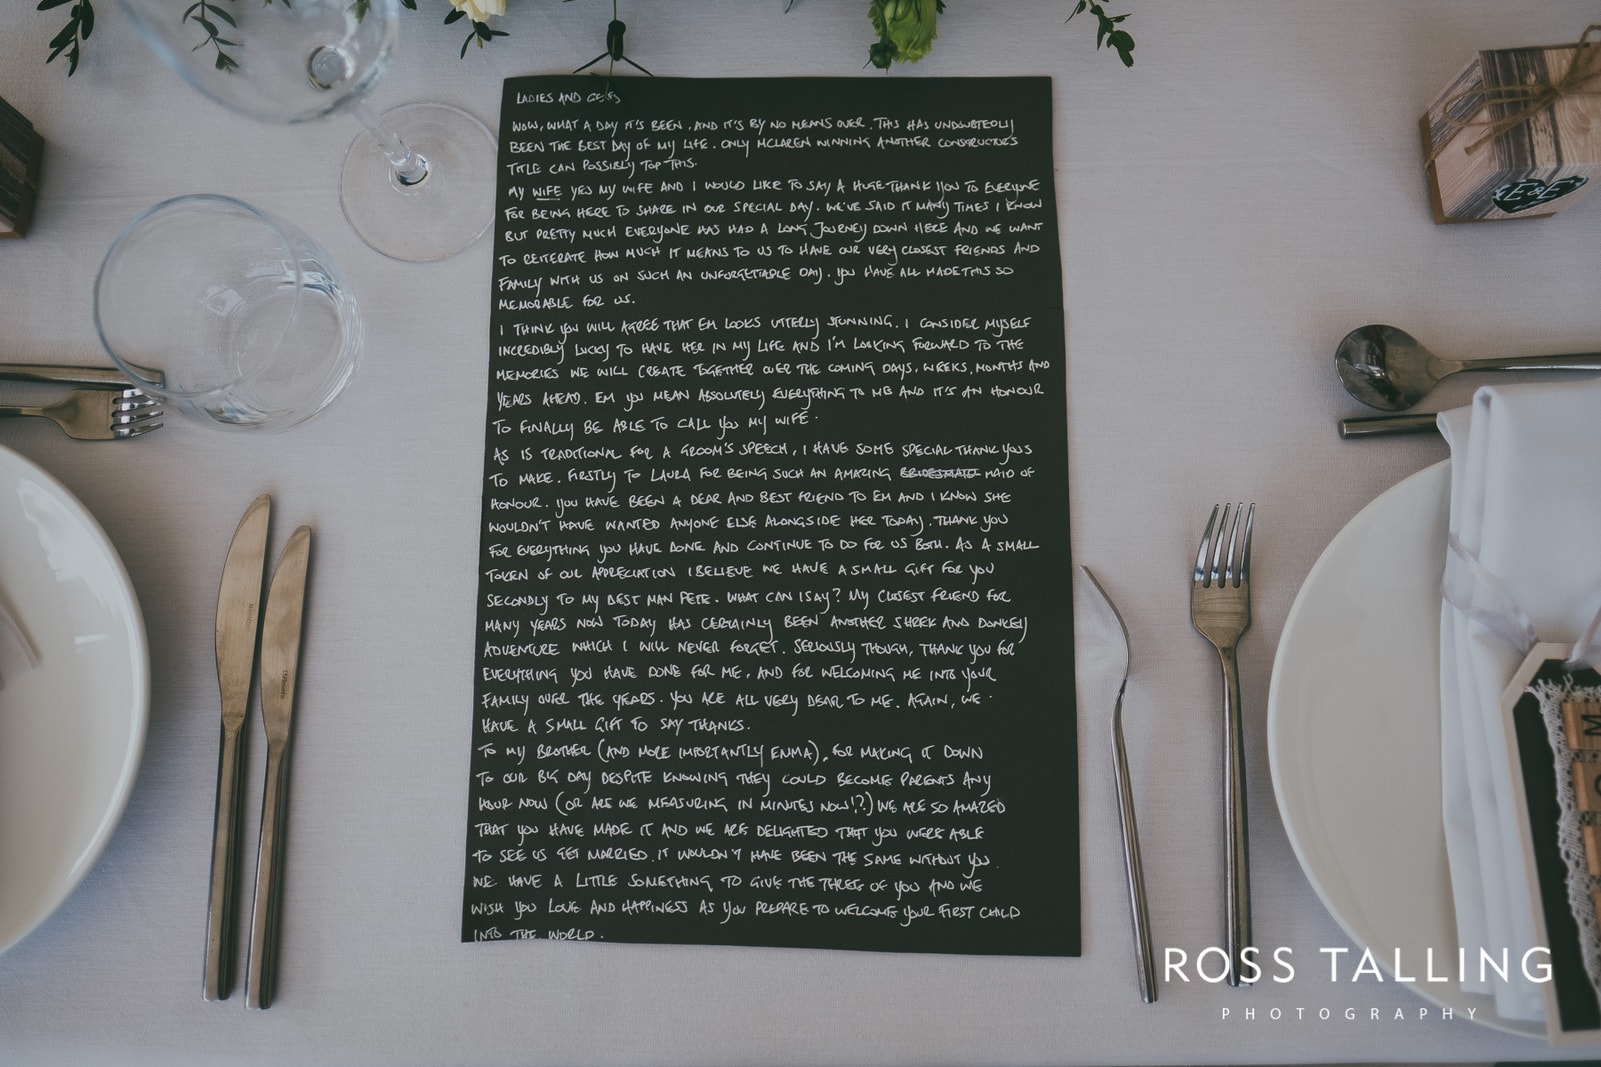 LADIES AND GENTS
WOW, WHAT A DAY IT'S BEEN. AND IT'S BY NO MEANS OVER. THIS HAS UNDOUBTEDLY
BEEN THE BEST DAY OF MY LIFE. ONLY MCLAREN WINNING ANOTHER CONSTRUCTORS
TITLE CAN POSSIBLY TOP THIS.
MY WIFE YES MY WIFE AND I WOULD LIKE TO SAY A HUGE THANK YOU TO EVERYONE
FOR BEING HERE TO SHARE IN OUR SPECIAL DAY. WE'VE SAID IT MANY TIMES I KNOW
BUT PRETTY MUCH EVERYONE HAS HAD A LONG JOURNEY DOWN HERE AND WE WANT
TO REITERATE HOW MUCH IT MEANS TO US TO HAVE OUR VERY CLOSEST FRIENDS AND
FAMILY WITH US ON SUCH AN UNFORGETTABLE DAY. YOU HAVE ALL MADE THIS SO
MEMORABLE FOR US.
I THINK YOU WILL AGREE THAT EM LOOKS UTTERLY STUNNING. I CONSIDER MYSELF
INCREDIBLY LUCKY TO HAVE HER IN MY LIFE AND I'M LOOKING FORWARD TO THE
MEMORIES WE WILL CREATE TOGETHER OVER THE COMING DAYS, WEEKS, MONTHS AND
YEARS AHEAD. EM YOU MEAN ABSOLUTELY EVERYTHING TO ME AND IT'S AN HONOUR
TO FINALLY BE ABLE TO CALL YOU MY WIFE.
AS IS TRADITIONAL FOR A GROOM'S SPEECH, I HAVE SOME SPECIAL THANK YOUS
TO MAKE. FIRSTLY TO LAURA FOR BEING SUCH AN AMAZING BRIDESMAID MAID OF
HONOUR. YOU HAVE BEEN A DEAR AND BEST FRIEND TO EM AND I KNOW SHE
WOULDN'T HAVE WANTED ANYONE ELSE ALONGSIDE HER TODAY. THANK YOU
FOR EVERYTHING YOU HAVE DONE AND CONTINUE TO DO FOR US BOTH. AS A SMALL
TOKEN OF OUR APPRECIATION I BELIEVE WE HAVE A SMALL GIFT FOR YOU
SECONDLY TO MY BEST MAN PETE. WHAT CAN I SAY? MY CLOSEST FRIEND FOR
MANY YEARS NOW TODAY HAS CERTAINLY BEEN ANOTHER SHREK AND DONKEY
ADVENTURE WHICH I WILL NEVER FORGET. SERIOUSLY THOUGH, THANK YOU FOR
EVERYTHING YOU HAVE DONE FOR ME, AND FOR WELCOMING ME INTO YOUR
FAMILY OVER THE YEARS. YOU ARE ALL VERY DEAR TO ME. AGAIN, WE
HAVE A SMALL GIFT TO SAY THANKS.
TO MY BROTHER (AND MORE IMPORTANTLY EMMA), FOR MAKING IT DOWN
TO OUR BIG DAY DESPITE KNOWING THEY COULD BECOME PARENTS ANY
HOUR NOW (OR ARE WE MEASURING IN MINUTES NOW!?) WE ARE SO AMAZED
THAT YOU HAVE MADE IT AND WE ARE DELIGHTED THAT YOU WERE ABLE
TO SEE US GET MARRIED. IT WOULDN'T HAVE BEEN THE SAME WITHOUT YOU.
WE HAVE A LITTLE SOMETHING TO GIVE THE THREE OF YOU AND WE
WISH YOU LOVE AND HAPPINESS AS YOU PREPARE TO WELCOME YOUR FIRST CHILD
INTO THE WORLD.
E & E
M
ROSS TALLING
PHOTOGRAPHY